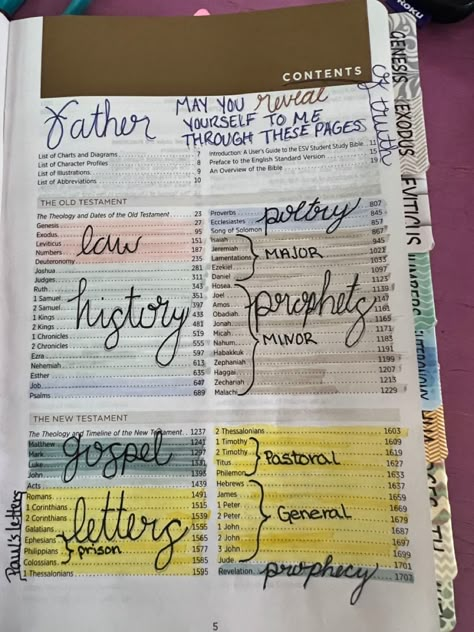 CONTENTS
Father
MAY YOU reveal
YOURSELF TO ME
THROUGH THESE PAGES
of truth
List of Charts and Diagrams 7
List of Character Profiles 8
List of Illustrations 9
List of Abbreviations 10
Introduction: A User's Guide to the ESV Student Study Bible 11
Preface to the English Standard Version 15
An Overview of the Bible 19
THE OLD TESTAMENT
The Theology and Dates of the Old Testament 23
Genesis 27
Exodus 95
Leviticus 151
Numbers 187
Deuteronomy 235
law
Joshua 281
Judges 311
Ruth 343
1 Samuel 351
2 Samuel 397
1 Kings 433
2 Kings 481
1 Chronicles 519
2 Chronicles 555
Ezra 597
Nehemiah 613
Esther 635
history
Job 647
Psalms 689
Proverbs 807
Ecclesiastes 845
Song of Solomon 857
poltry
Isaiah 867
Jeremiah 945
Lamentations
Ezekiel 1033
Daniel 1097
MAJOR
Hosea 1123
Joel 1139
Amos 1147
Obadiah 1161
Jonah 1165
Micah 1171
Nahum 1183
Habakkuk 1191
Zephaniah 1199
Haggai 1207
Zechariah 1213
Malachi 1229
prophets
MINOR
THE NEW TESTAMENT
The Theology and Timeline of the New Testament 1237
Matthew 1241
Mark 1297
Luke
John 1398
gospel
Acts 1439
Romans 1491
1 Corinthians 1515
2 Corinthians 1539
Galatians 1555
Ephesians 1565
Philippians 1577
Colossians 1585
1 Thessalonians 1595
letters
prison
Paul's letters
2 Thessalonians 1603
1 Timothy 1609
2 Timothy 1619
Titus 1627
Philemon 1633
Pastoral
Hebrews 1637
James 1659
1 Peter 1669
2 Peter 1679
1 John 1687
2 John
3 John 1697
Jude 1699
General
Revelation 1701
prophecy
1707
5
GENESIS
EXODUS
LEVITICUS
NUMBERS
ROKU